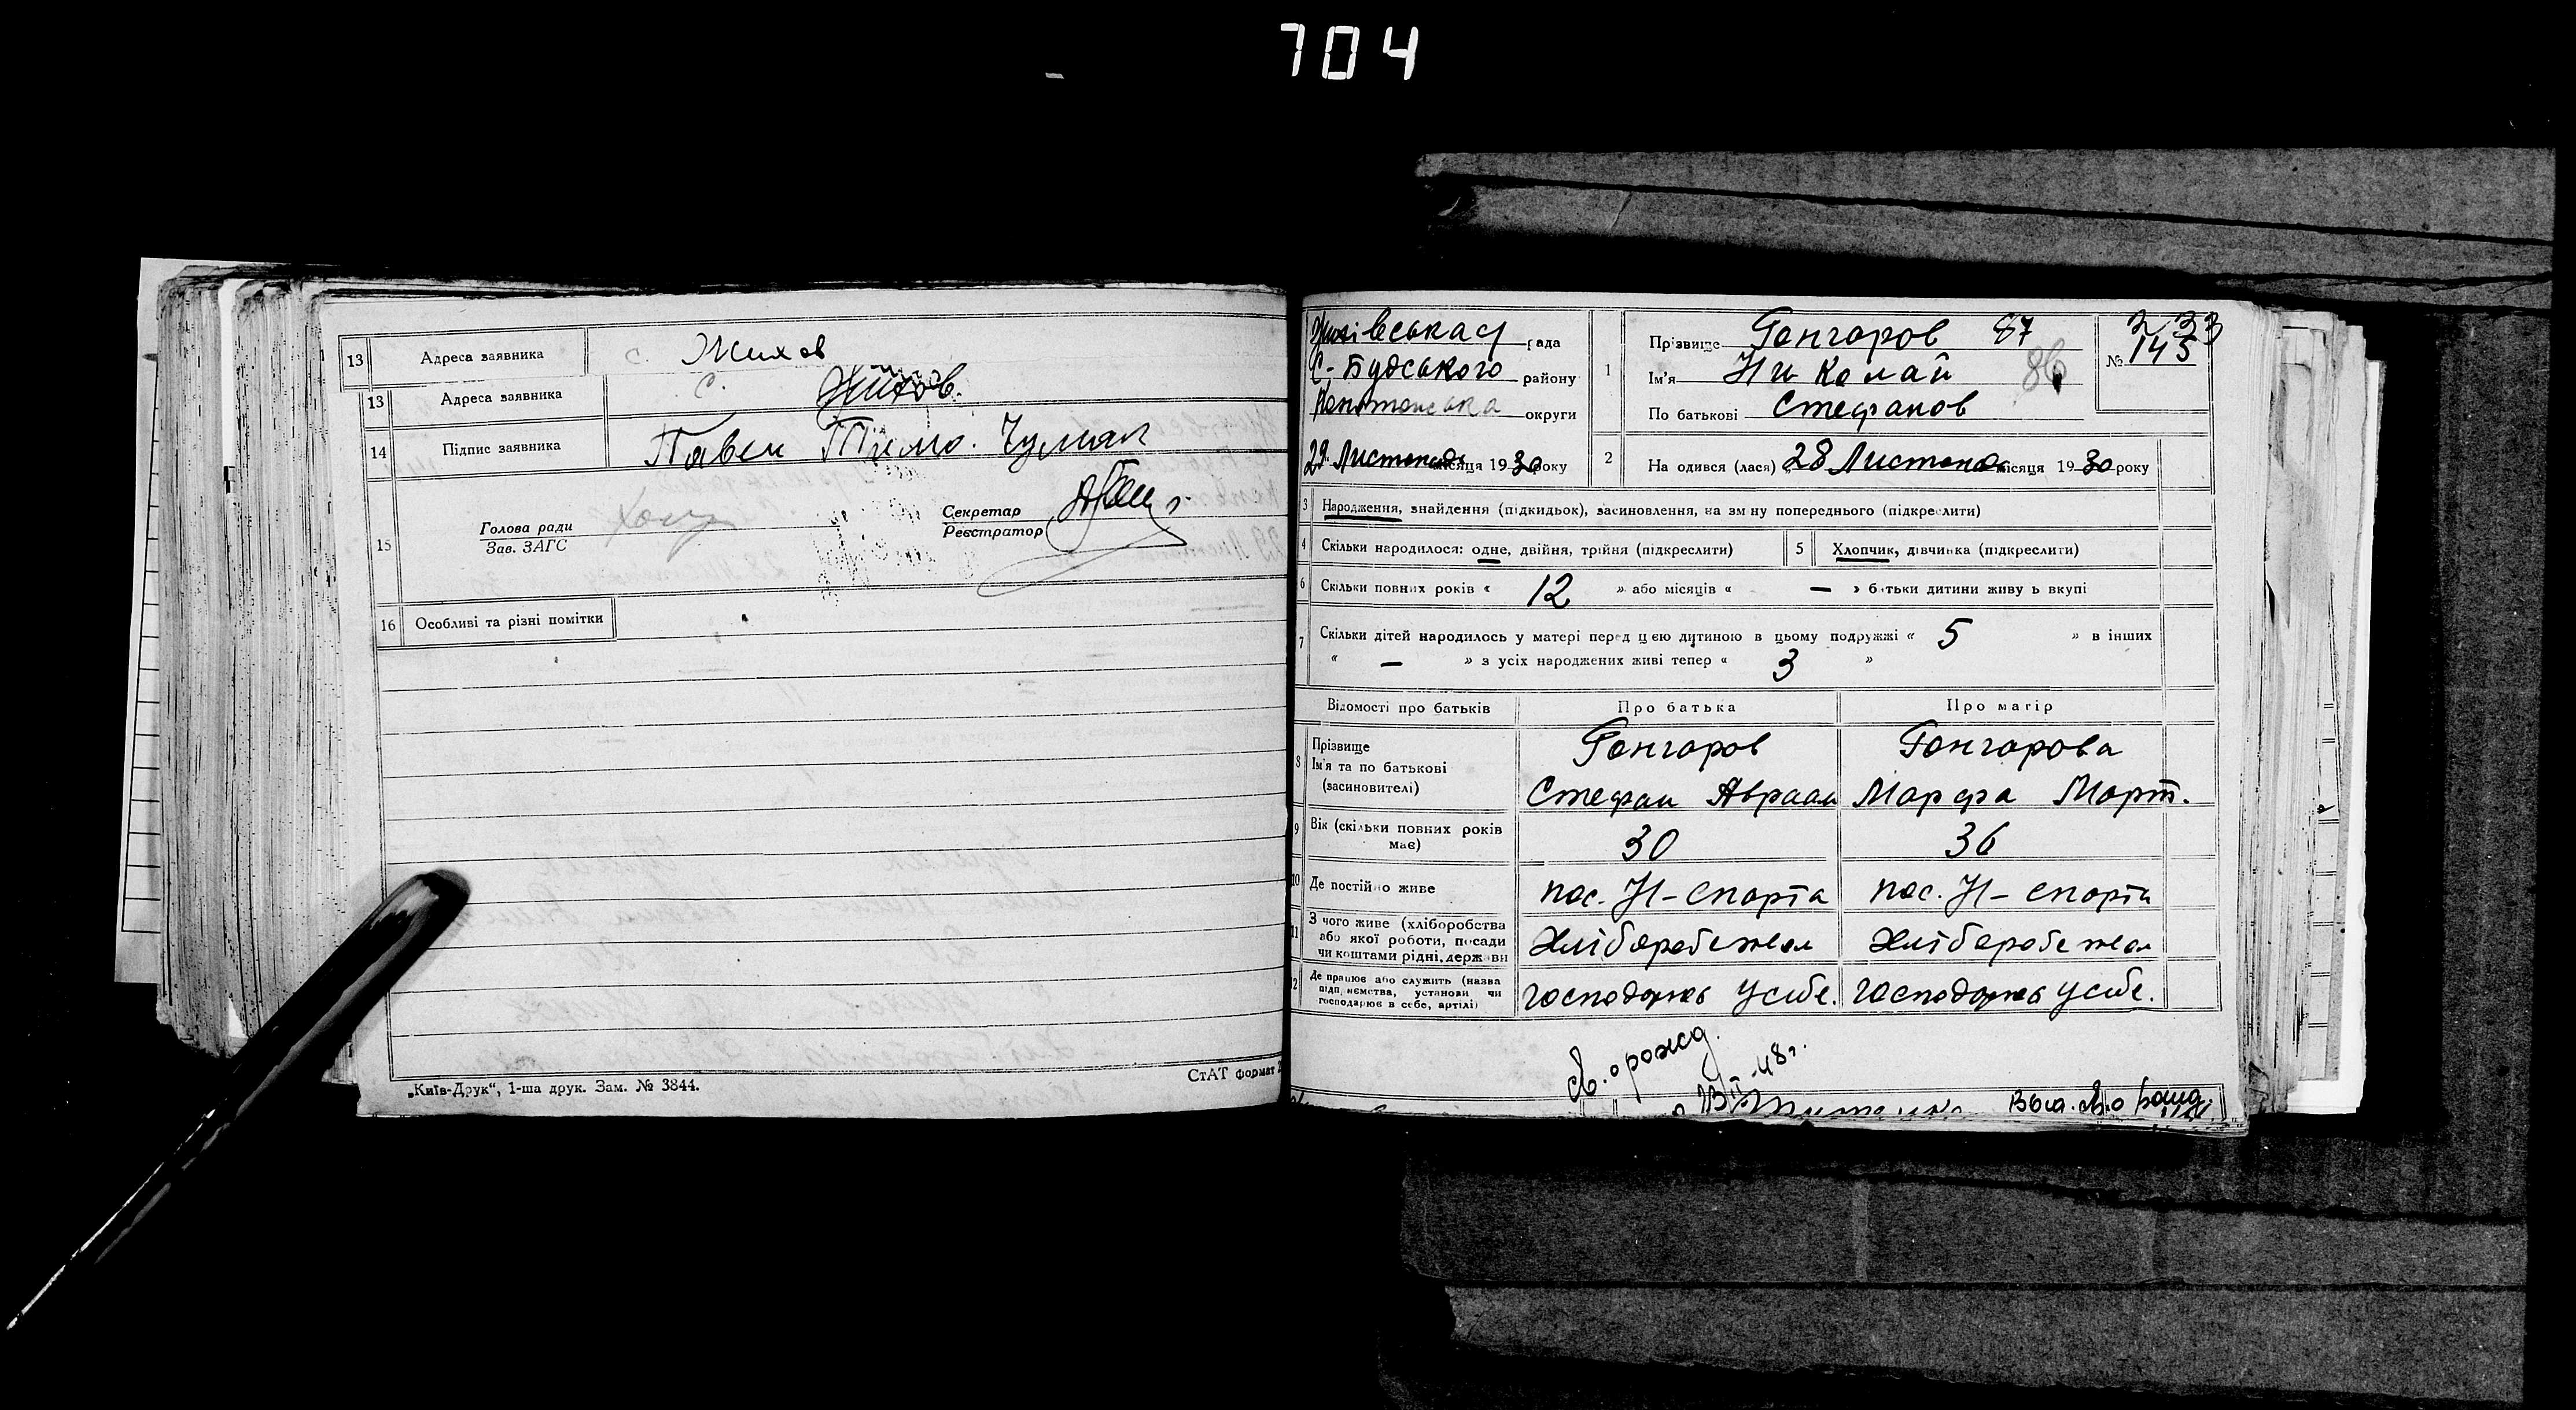 704
13 Адреса заявника с. Жихов
13 Адреса заявника с. Жихов.
14 Підпис заявника Павел Тимо. Чумак
15 Голова ради
Зав. ЗАГС
Секретар
Реєстратор
16 Особливі та різні помітки
„Київ-Друк“, 1-ша друк. Зам. № 3844.
СтАТ формат
Жихівськая рада
С-Будського району
Конотопська округи
29 Листопада місяця 1930 року
1 Прізвище Гончаров 87
Ім'я Николай 86
По батькові Стефанов
233
№ 145
2 Народився (лася) „28 Листопада місяця 1930 року
3 Народження, знайдення (підкидьок), засиновлення, на зміну попереднього (підкреслити)
4 Скільки народилося: одне, двійня, трійня (підкреслити)
5 Хлопчик, дівчинка (підкреслити)
6 Скільки повних років « 12 » або місяців « — » батьки дитини живуть вкупі
7 Скільки дітей народилось у матері перед цією дитиною в цьому подружжі « 5 » в інших
« — » з усіх народжених живі тепер « 3 »
Відомості про батьків Про батька Про матір
8 Прізвище
Ім'я та по батькові
(засиновителі)
Гончаров
Стефан Авраам
Гончарова
Марфа Март.
9 Вік (скільки повних років
має)
30 36
10 Де постійно живе пос. Н-спарта пос. Н-спарта
11 З чого живе (хліборобства
або якої роботи, посади
чи коштами рідні, держави
Хліборобством Хліборобством
12 Де працює або служить (назва
підприємства, установи чи
господарює в себе, артілі)
господарює усибе. господарює усибе.
св. о рожд.
48г.
Выд. св. о рожд.